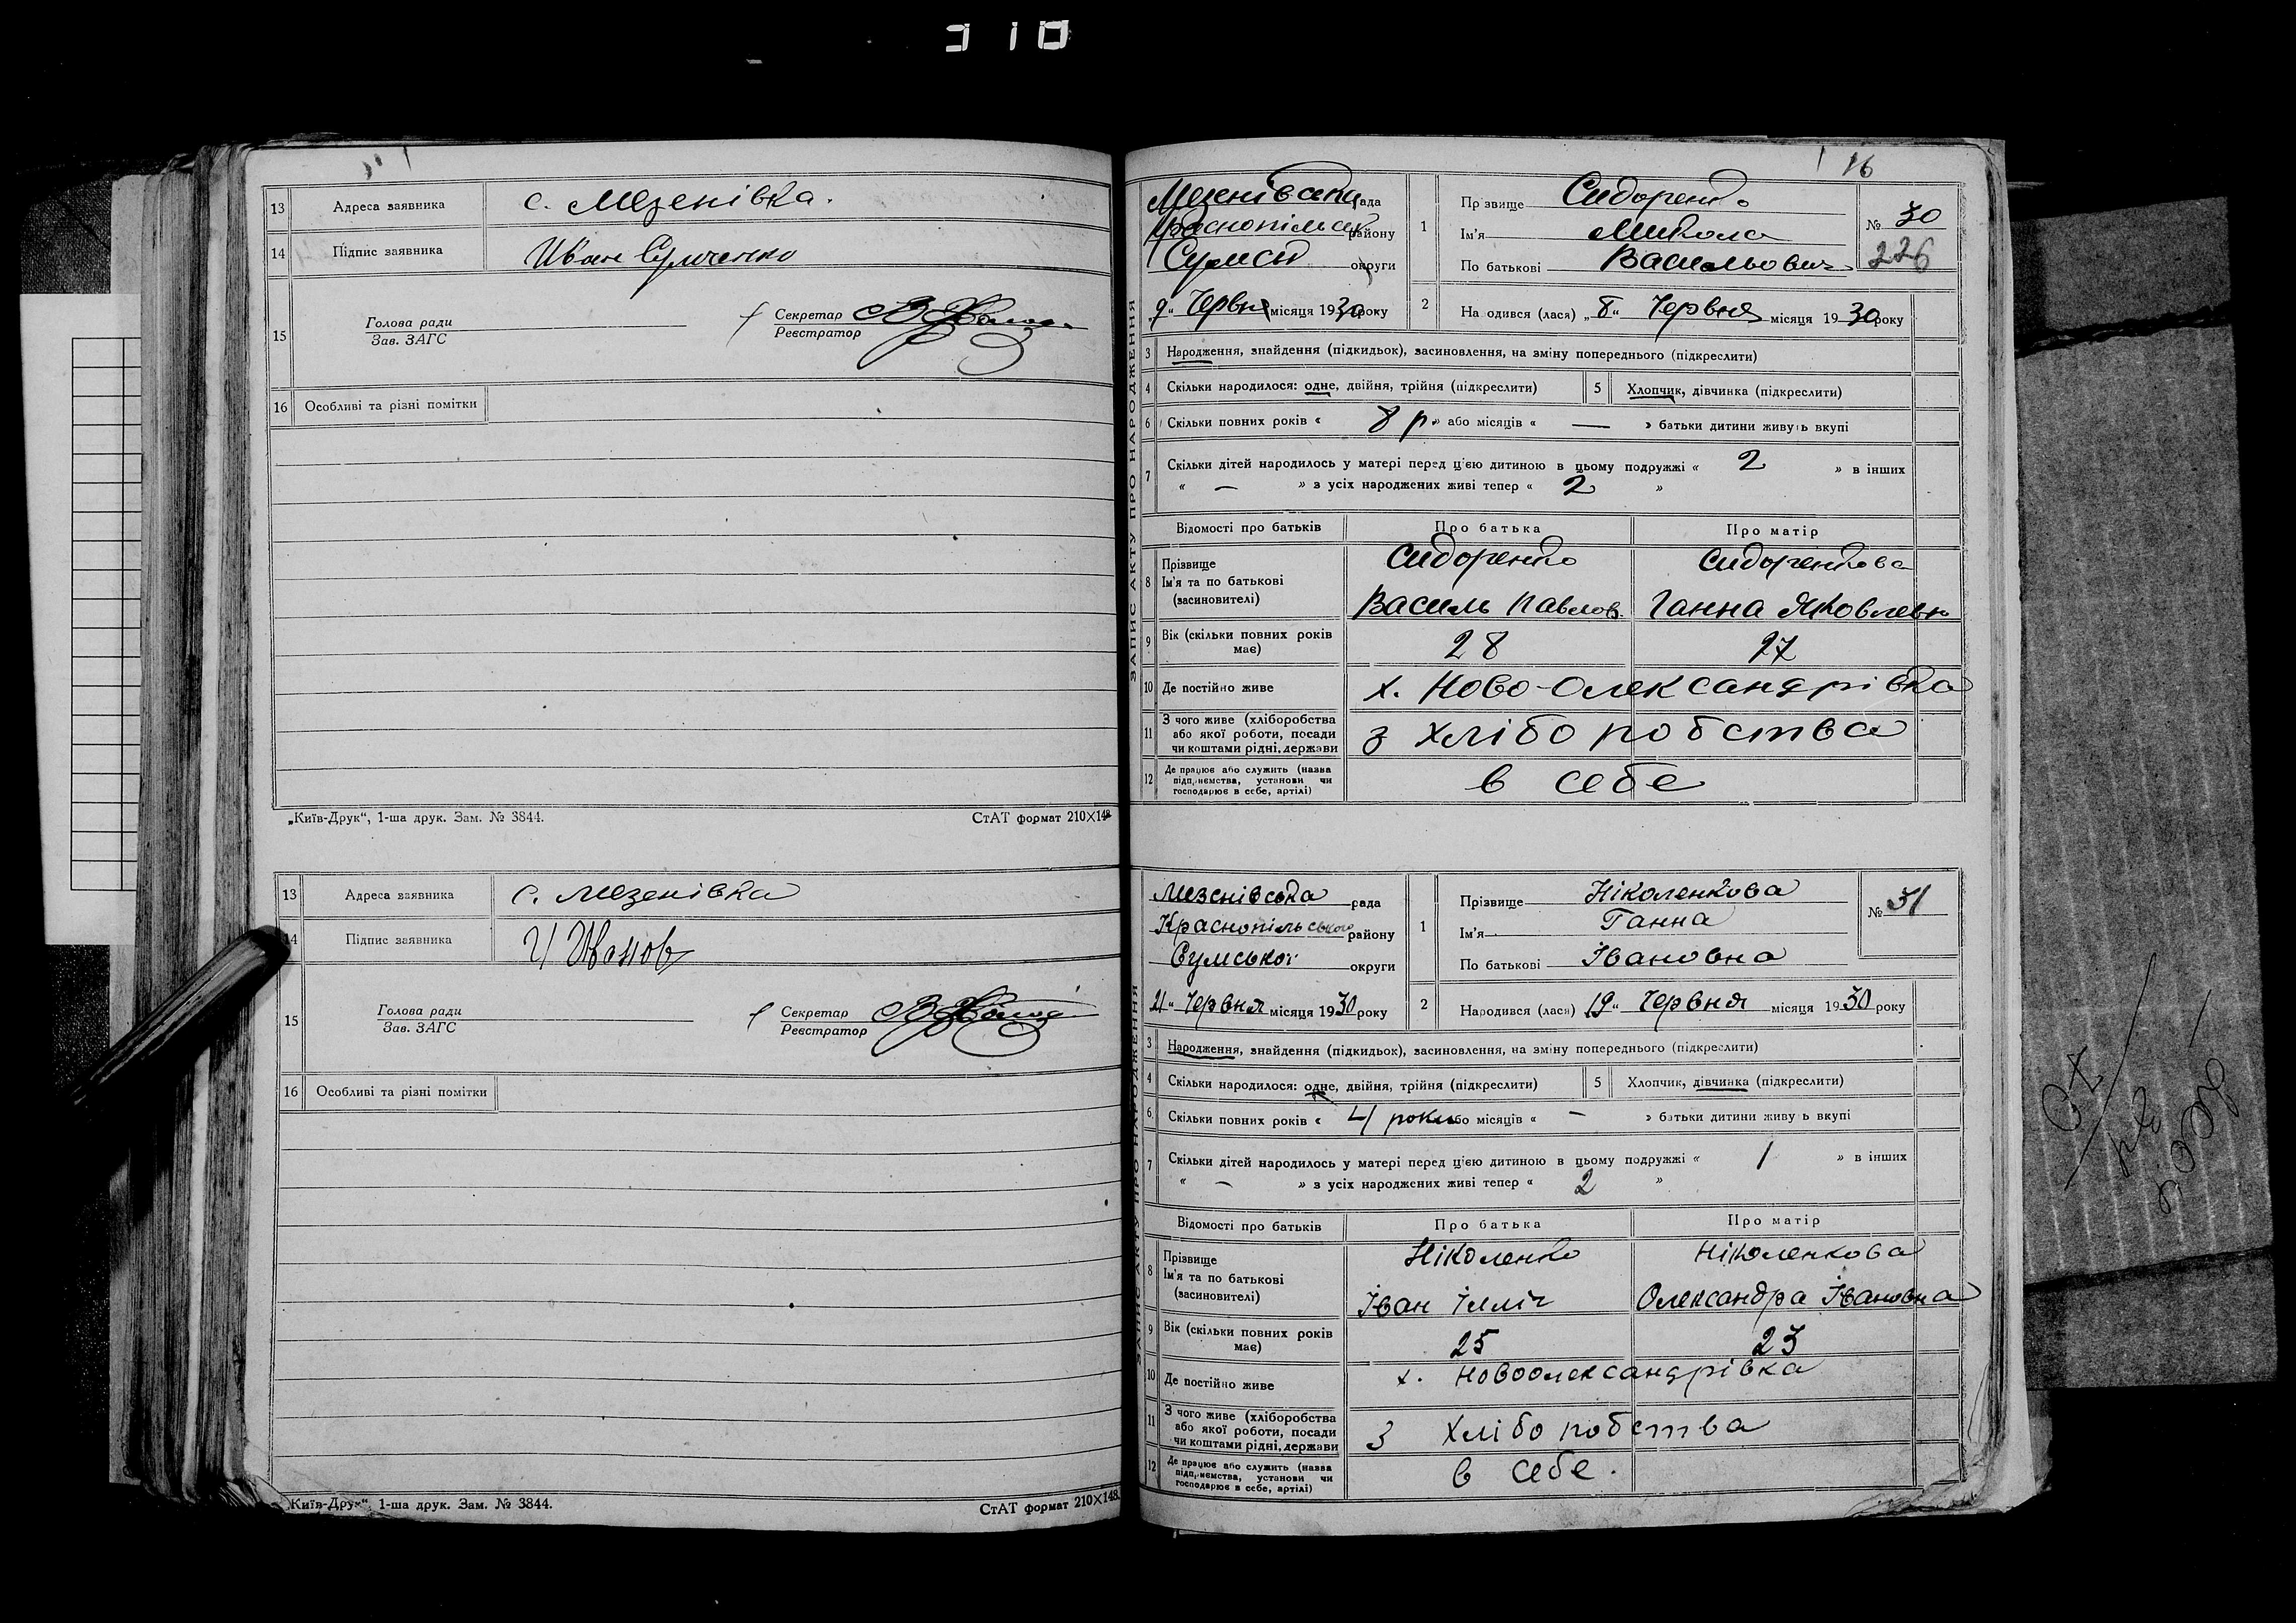 310
13 Адреса заявника с. Мезенівка.
14 Підпис заявника Иван
15 Голова ради
Зав. ЗАГС
Секретар
Реєстратор
16 Особливі та різні помітки
„Київ-Друк“, 1-ша друк. Зам. № 3844. СтАТ формат 210×148
13 Адреса заявника с. Мезенівка
14 Підпис заявника И Иванов
15 Голова ради
Зав. ЗАГС
Секретар
Реєстратор
16 Особливі та різні помітки
„Київ-Друк“, 1-ша друк. Зам. № 3844. СтАТ формат 210×148.
16
ЗАПИС АКТУ ПРО НАРОДЖЕННЯ
Мезенівська рада
Краснопільськ району
Сумськ округи
9 „ Червня місяця 1930 року
1 Прізвище Сидоренко
Ім'я Микола
По батькові Васильович
№ 30
226
2 Народився (лася) „8“ Червня місяця 1930 року
3 Народження, знайдення (підкидьок), засиновлення, на зміну попереднього (підкреслити)
4 Скільки народилося: одне, двійня, трійня (підкреслити) 5 Хлопчик, дівчинка (підкреслити)
6 Скільки повних років « 8 р. » або місяців « — » батьки дитини живуть вкупі
7 Скільки дітей народилось у матері перед цією дитиною в цьому подружжі « 2 » в інших
« — » з усіх народжених живі тепер « 2 »
Відомості про батьків Про батька Про матір
8 Прізвище Сидоренко Сидоренкова
Ім'я та по батькові
(засиновителі) Василь Павлов. Ганна Яковлевн
9 Вік (скільки повних років має) 28 27
10 Де постійно живе х. Ново-Олександрівка
11 З чого живе (хліборобства
або якої роботи, посади
чи коштами рідні, держави з хліборобства
12 Де працює або служить (назва
підприємства, установи чи
господарює в себе, артілі) в себе
ЗАПИС АКТУ ПРО НАРОДЖЕННЯ
Мезенівська рада
Краснопільського району
Сумської округи
21 „ Червня місяця 1930 року
1 Прізвище Ніколенкова
Ім'я Ганна
По батькові Івановна
№ 31
2 Народився (лася) 19 “ Червня місяця 1930 року
3 Народження, знайдення (підкидьок), засиновлення, на зміну попереднього (підкреслити)
4 Скільки народилося: одне, двійня, трійня (підкреслити) 5 Хлопчик, дівчинка (підкреслити)
6 Скільки повних років « 4 роки або місяців « — » батьки дитини живуть вкупі
7 Скільки дітей народилось у матері перед цією дитиною в цьому подружжі « 1 » в інших
« — » з усіх народжених живі тепер « 2 »
Відомості про батьків Про батька Про матір
8 Прізвище Ніколенко Ніколенкова
Ім'я та по батькові
(засиновителі) Іван Ілліч Олександра Івановна
9 Вік (скільки повних років має) 25 23
10 Де постійно живе х. Новоолександрівка
11 З чого живе (хліборобства
або якої роботи, посади
чи коштами рідні, держави З хліборобства
12 Де працює або служить (назва
підприємства, установи чи
господарює в себе, артілі) в себе.